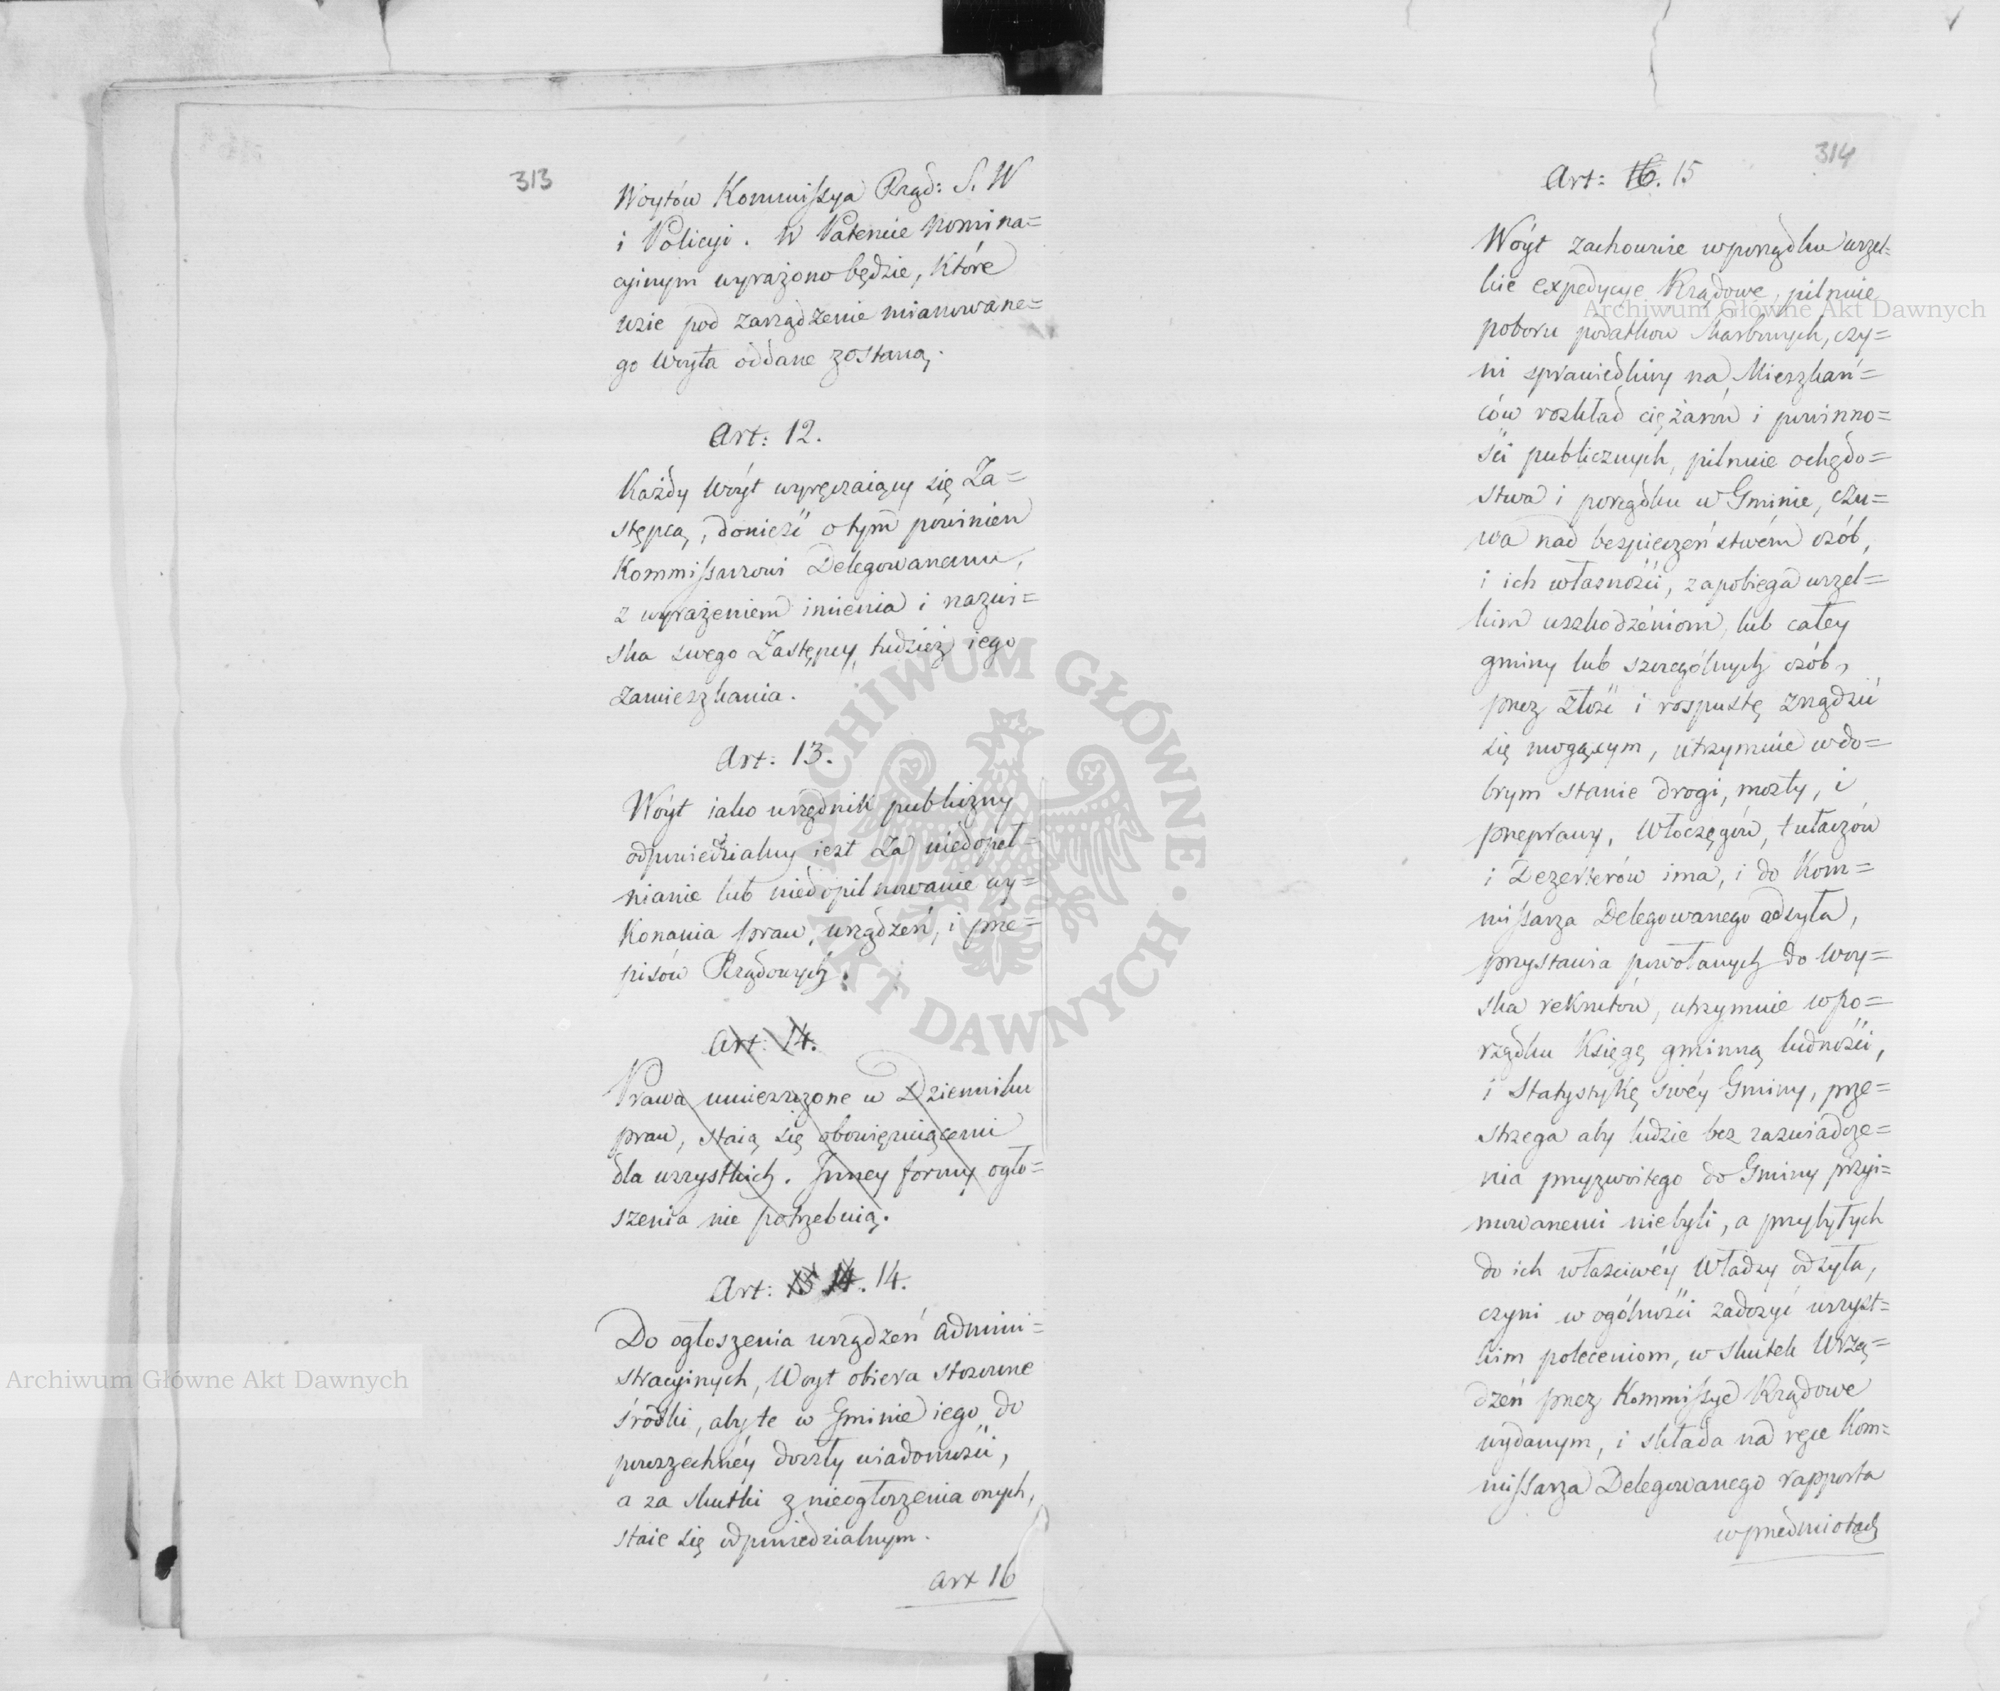 313
Woytów Kommissya Rząd: S. W
i Policyi. W Patencie nomina=
cyinym wyrażono będzie, które
wsie pod zarządzenie mianowane=
go Woyta oddane zostaną.
Art: 12.
Każdy Wóyt wyręczaiący się Za=
stępcą, donieść o tym powinien
Kommissarzowi Delegowanemu,
z wyrażeniem imienia i nazwi=
ska swego Zastępcy, tudzież iego
zamieszkania.
Art: 13.
Wóyt iako urzędnik publiczny
odpowiedzialny iest za niedopeł=
nianie lub niedopilnowanie wy=
konania praw, urządzeń, i prze=
pisów Rządowych.
Art: 14.
Prawa umieszczone w Dzienniku
praw, staią się obowięzuiącemi
dla wszystkich. Inney formy ogło=
szenia nie potrzebuią.
Art: 15 14. 14.
Do ogłoszenia urządzeń admini=
stracyinych, Woyt obiera stosowne
środki, aby te w Gminie iego do
powszechnéy doszły wiadomości,
a za skutki z nieogłoszenia onych,
staie się odpowiedzialnym.
Art 16
314
Art: 16. 15
Wóyt zachowuie w porządku wszel=
kie expedycye Rządowe, pilnuie
poboru podatkow skarbowych, czy=
ni sprawiedliwy na Mieszkań=
ców rozkład ciężarów i powinno=
ści publicznych, pilnuie ochędo=
stwa i porządku w Gminie, czu=
wa nad bespieczeństwém osób,
i ich własności, zapobiega wszel=
kim uszkodzéniom, lub całey
gminy lub szczególnych osób,
przez złość i rospustę zrządzić
się mogącym, utrzymuie w do=
brym stanie drogi, mosty, i
przeprawy, Włóczęgów, tułaczów
i Dezerterów ima, i do Kom=
missarza Delegowanego odsyła,
przystawia powołanych do Woy=
ska rekrutów, utrzymuie w po=
rządku Księgę gminną ludności,
i Statystykę swéy Gminy, prze=
strzega aby ludzie bez zaswiadcze=
nia przyzwoitego do Gminy przyi=
mowanemi niebyli, a przybyłych
do ich właściwéy Władzy odsyła,
czyni w ogólności zadosyć wszyst=
kim poleceniom, w skutek Urzą=
dzeń przez Kommissye Rządowe
wydanym, i składa na ręce Kom=
missarza Delegowanego rapporta
w przedmiotach
Archiwum Główne Akt Dawnych
Archiwum Główne Akt Dawnych
ARCHIWUM GŁÓWNE · AKT DAWNYCH ·